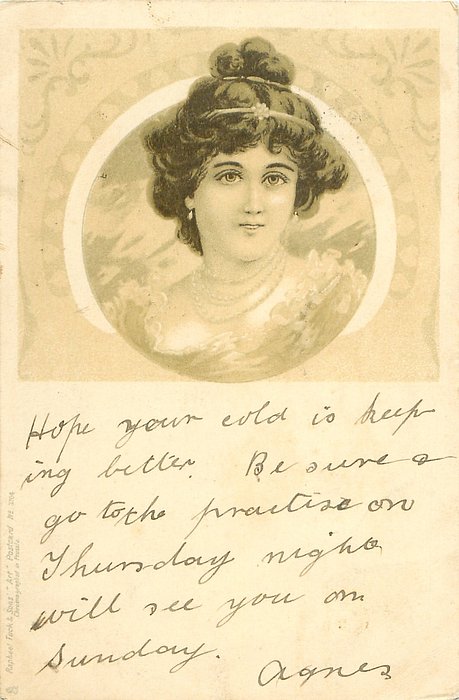 Hope your cold is keep
ing better. Be sure &
go to the practise on
Thursday night
will see you on
Sunday.
Agnes
Raphael Tuck & Sons' "Art" Postcard No.
Chromographed in Prussia